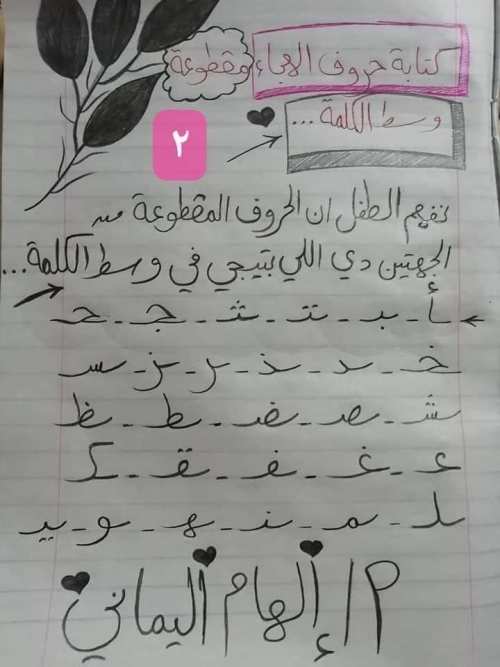 كتابة حروف الهجاء مقطوعة
وسط الكلمة...
٢
نفهم الطفل ان الحروف المقطوعة من
الجهتين دي اللي بتيجي في وسط الكلمة...
ـأ - ـبـ - ـتـ - ـثـ - ـجـ - ـحـ
ـخـ - ـد - ـذ - ـر - ـز - ـسـ
ـشـ - ـصـ - ـضـ - ـطـ - ـظـ
ـعـ - ـغـ - ـفـ - ـقـ - ـكـ
ـلـ - ـمـ - ـنـ - ـهـ - ـو - ـيـ
م/ إلهام اليماني